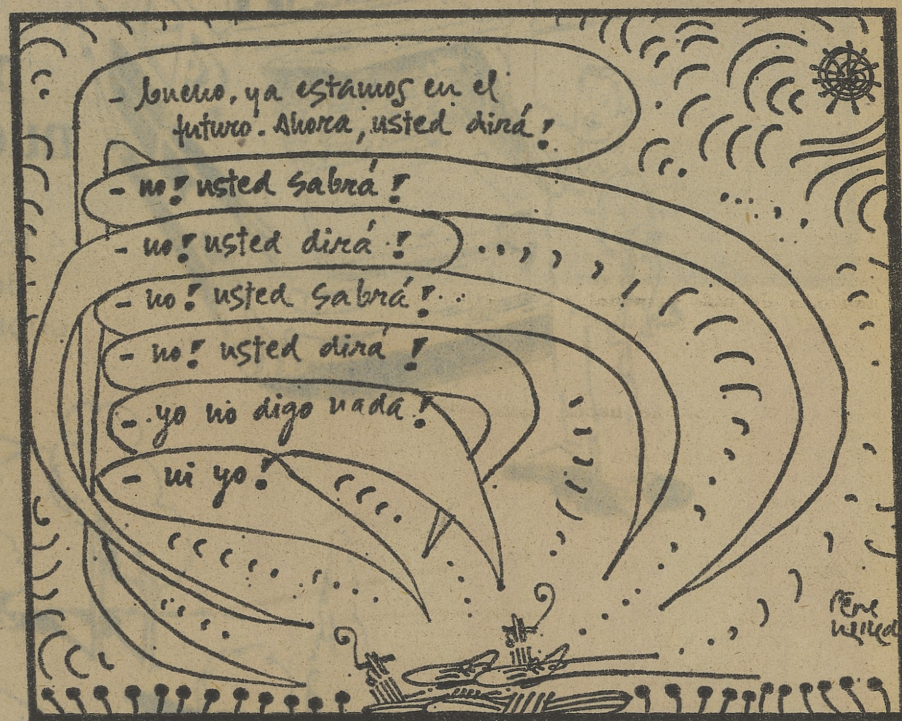 - bueno, ya estamos en el
futuro. Ahora, usted dirá!
- no! usted sabrá!
- no! usted dirá!
- no! usted sabrá!
- no! usted dirá!
- yo no digo nada!
- ni yo!